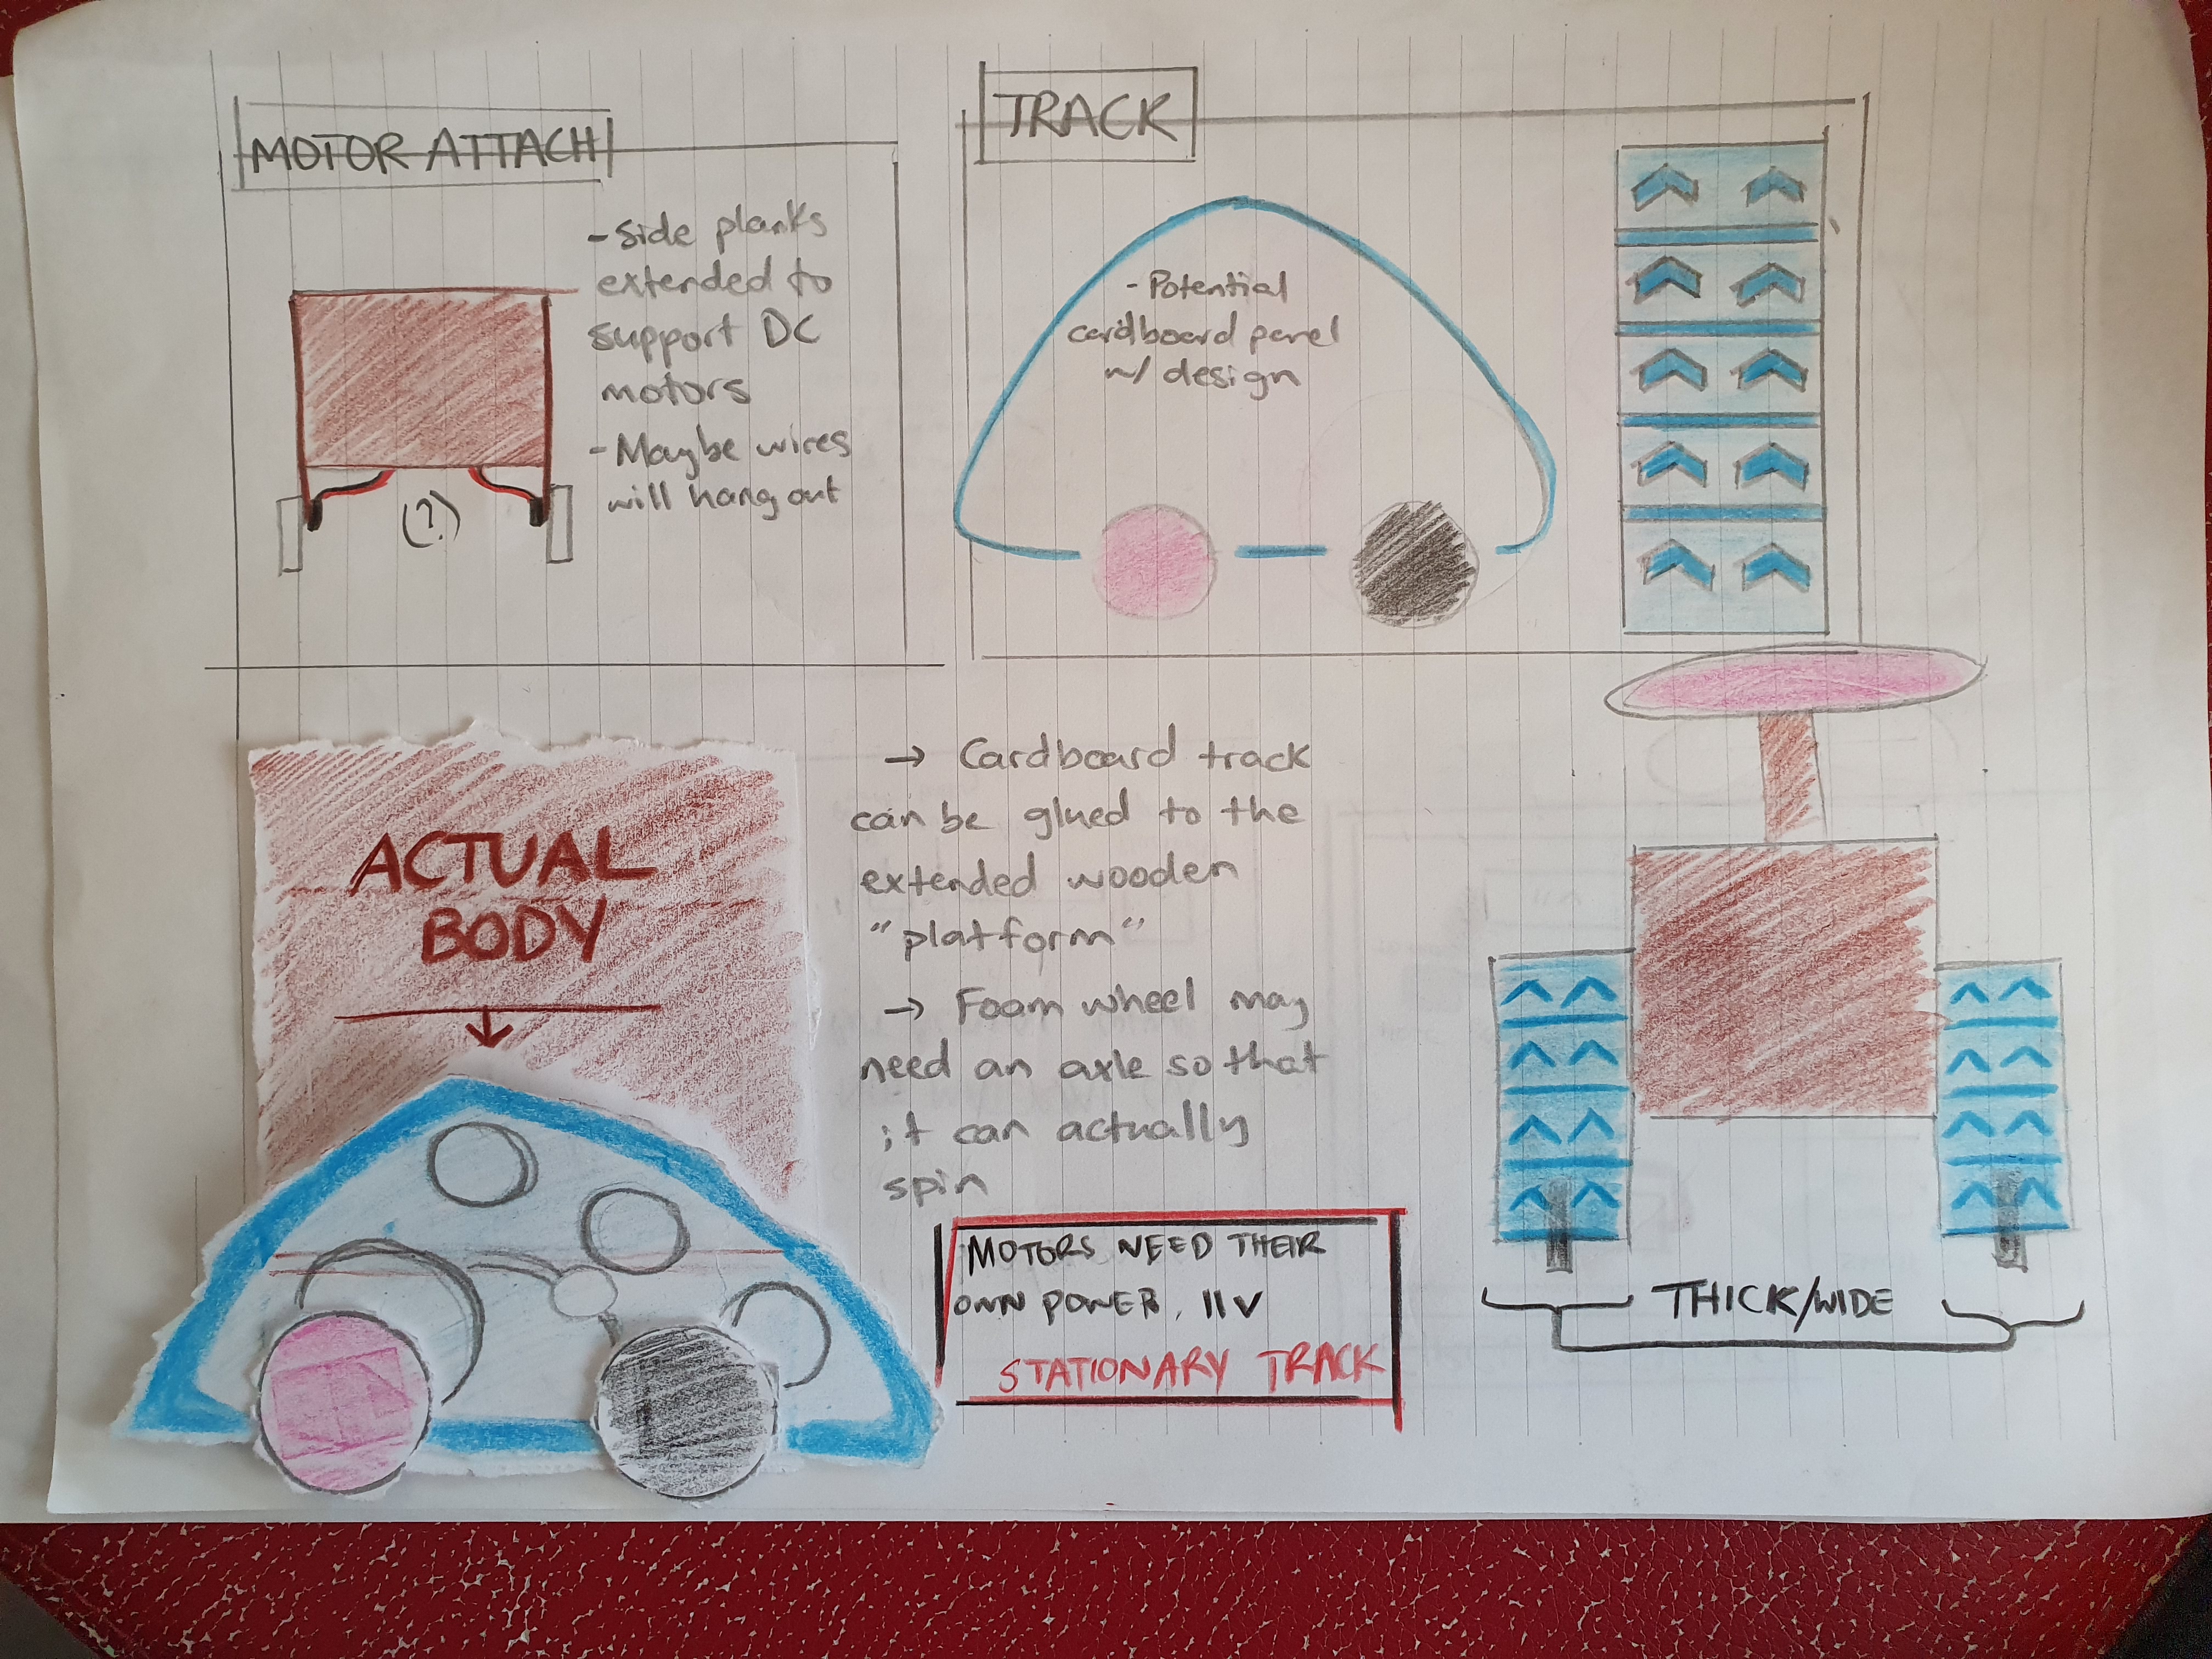 MOTOR ATTACH
- Side planks
extended to
support DC
motors
- Maybe wires
will hang out
(?)
TRACK
- Potential
cardboard panel
w/ design
ACTUAL
BODY
→ Cardboard track
can be glued to the
extended wooden
"platform"
→ Foam wheel may
need an axle so that
it can actually
spin
MOTORS NEED THEIR
OWN POWER, 11V
STATIONARY TRACK
THICK/WIDE